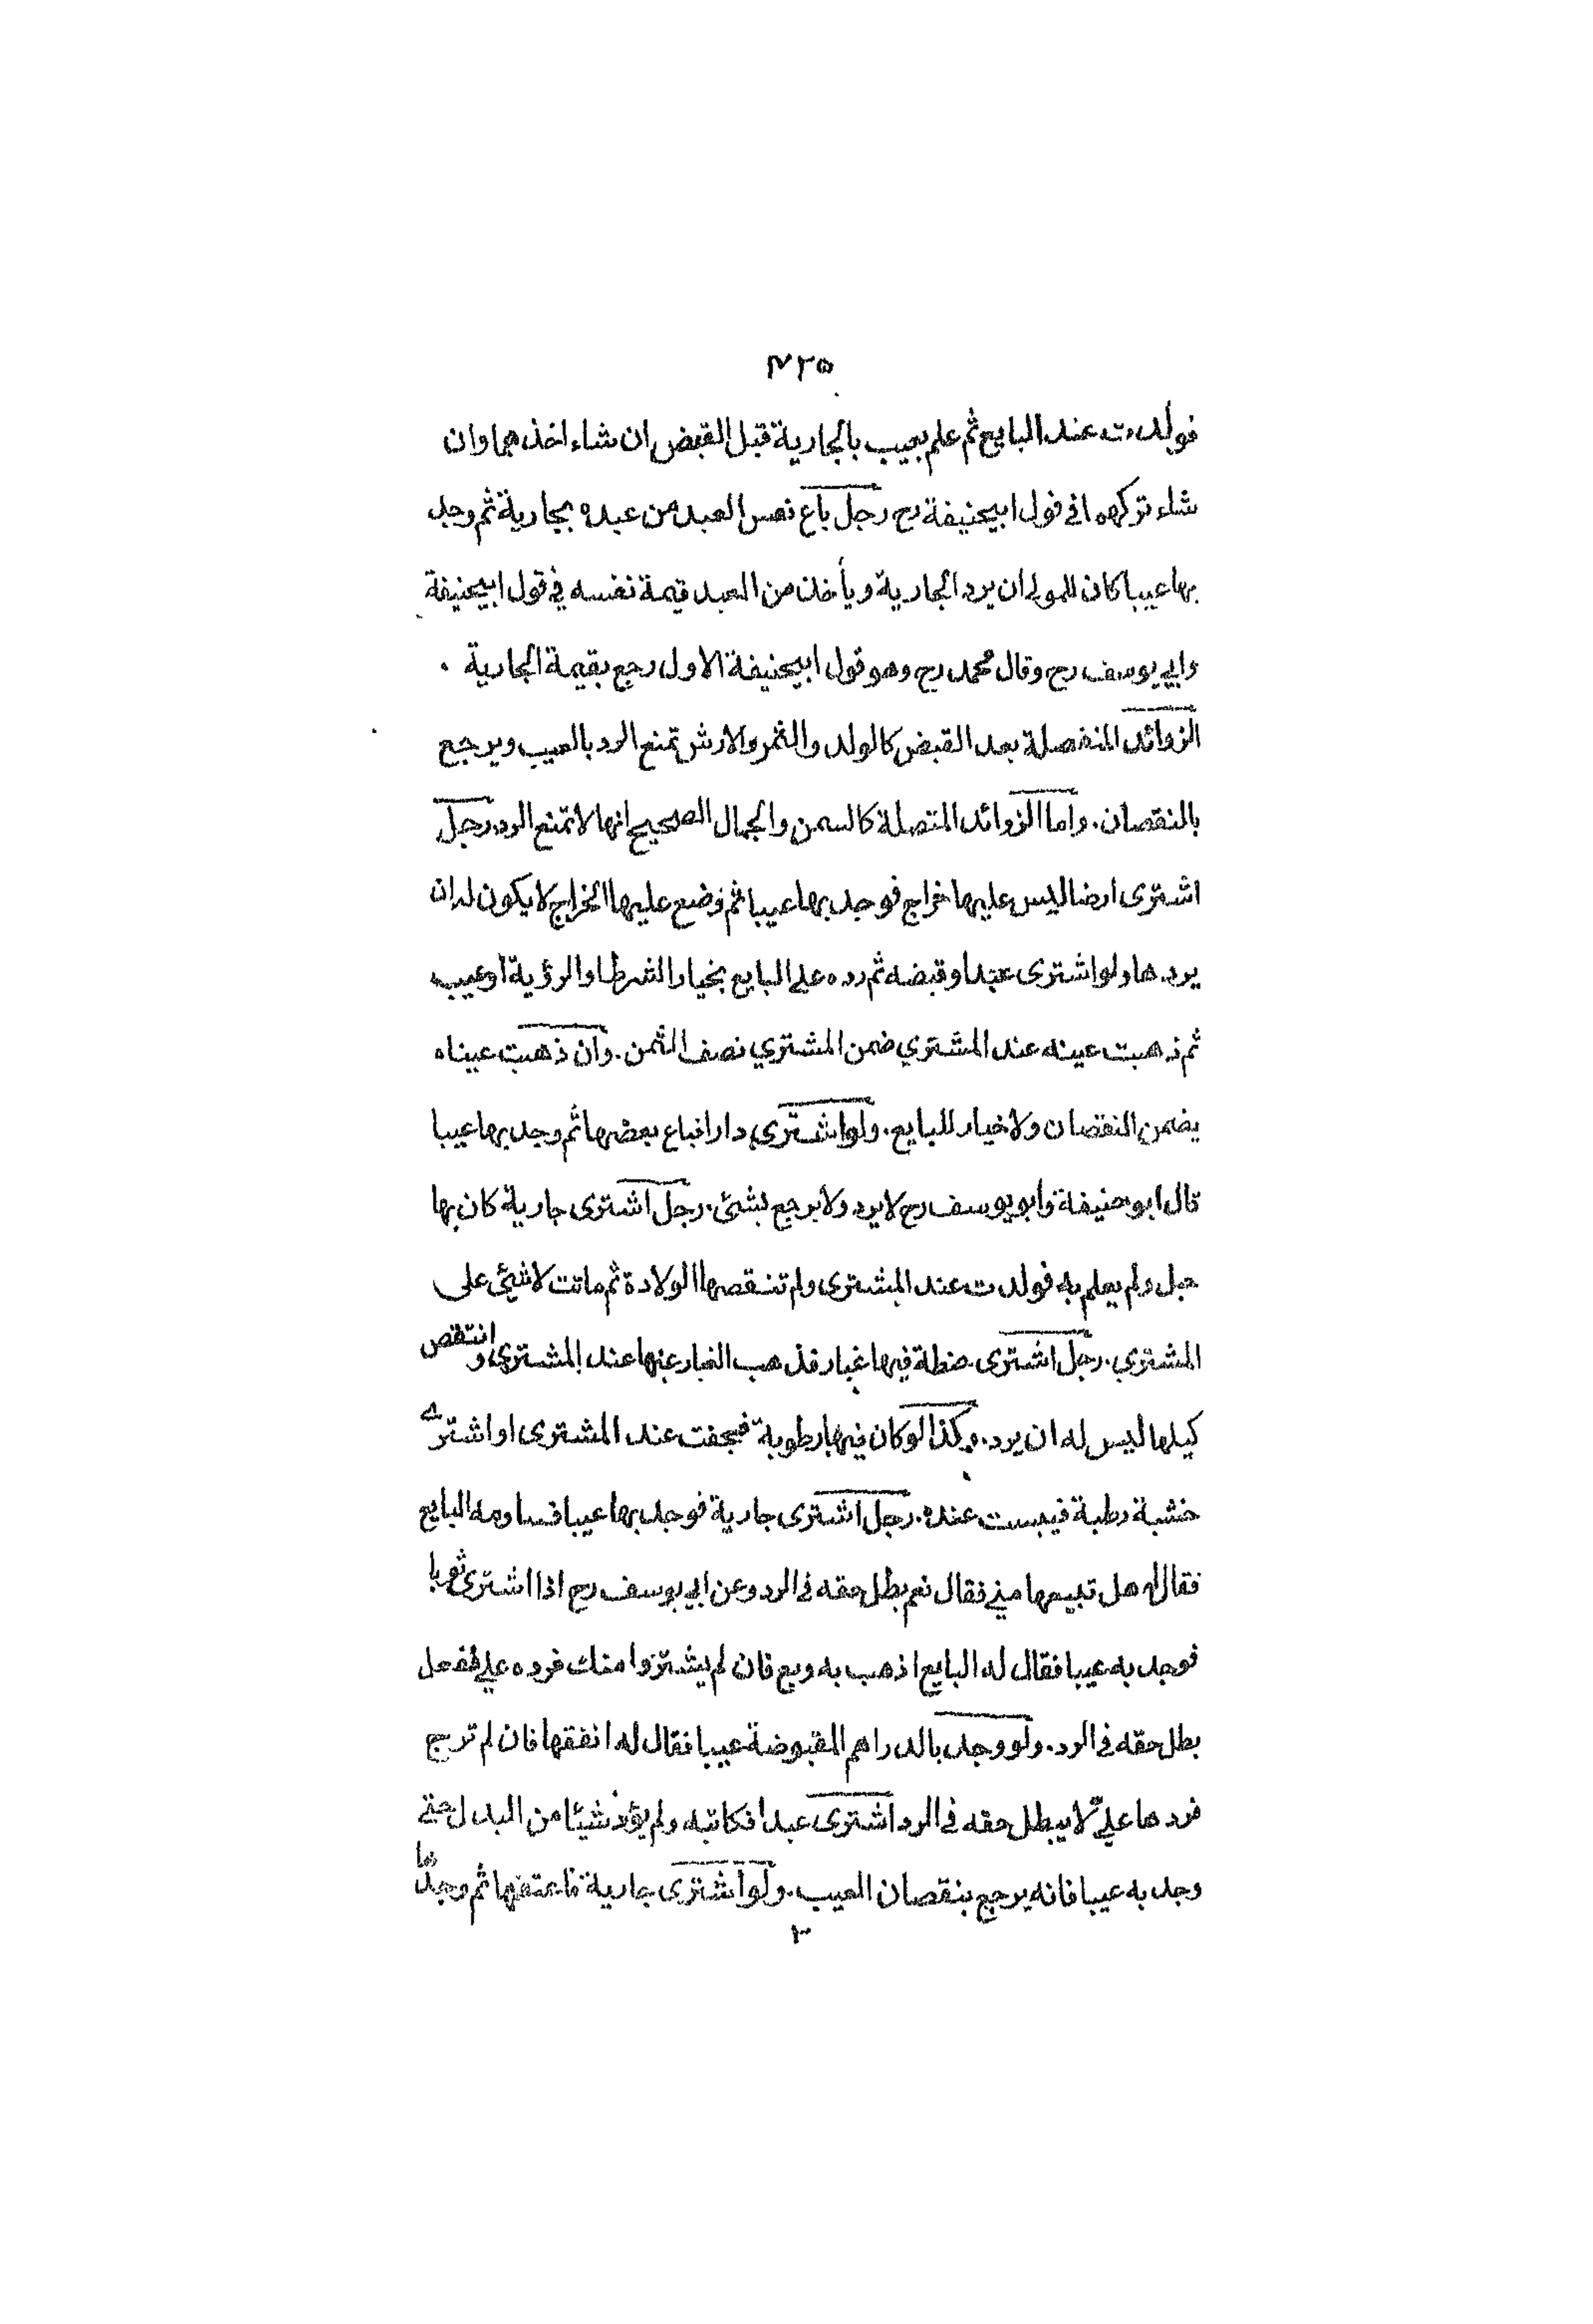 ٣٢٥
فولدت عند البايع ثم علم بعيب بالجارية قبل القبض ان شاء اخذهما وان
شاء تركهما في قول ابيحنيفة رح رجل باع نفس العبد من عبده بجارية ثم وجد
بها عيبا كان للمولى ان يرد الجارية ويأخذ من العبد قيمة نفسه في قول ابيحنيفة
وابي يوسف رح وقال محمد رح وهو قول ابيحنيفة الاول رجع بقيمة الجارية .
الزوائد المنفصلة بعد القبض كالولد والثمر والارش تمنع الرد بالعيب ويرجع
بالنقصان. واما الزوائد المتصلة كالسمن والجمال الصحيح انها لا تمنع الرد. رجل
اشترى ارضا ليس عليها خراج فوجد بها عيبا ثم وضع عليها الخراج لا يكون له ان
يردها ولو اشترى عبدا وقبضه ثم رده على البايع بخيار الشرط او الرؤية او عيب
ثم ذهبت عينه عند المشتري ضمن المشتري نصف الثمن. وان ذهبت عيناه
يضمن النقصان ولا خيار للبايع. ولو اشترى دارا فباع بعضها ثم وجد بها عيبا
قال ابو حنيفة وابو يوسف رح لا يرد ولا يرجع بشئ. رجل اشترى جارية كان بها
حبل ولم يعلم به فولدت عند المشترى ولم تنقصها الولادة ثم ماتت لا شئ على
المشتري. رجل اشترى حنطة فيها غبار فذهب الغبار عنها عند المشتري وانتقص
كيلها ليس له ان يرد. وكذا لو كان فيها رطوبة فجفت عند المشترى او اشترى
خشبة رطبة فيبست عنده. رجل اشترى جارية فوجد بها عيبا فساومه البايع
فقال له هل تبيعها مني فقال نعم بطل حقه في الرد وعن ابي يوسف رح اذا اشترى ثوبا
فوجد به عيبا فقال له البايع اذهب به وبع فان لم يشتروا منك فرده علي ففعل
بطل حقه في الرد. ولو وجد بالدراهم المقبوضة عيبا فقال له انفقها فان لم ترج
فردها علي لا يبطل حقه في الرد اشترى عبدا فكاتبه ولم يؤد شيئا من البدل حتى
وجد به عيبا فانه يرجع بنقصان العيب. ولو اشترى جارية فاعتقها ثم وجدها